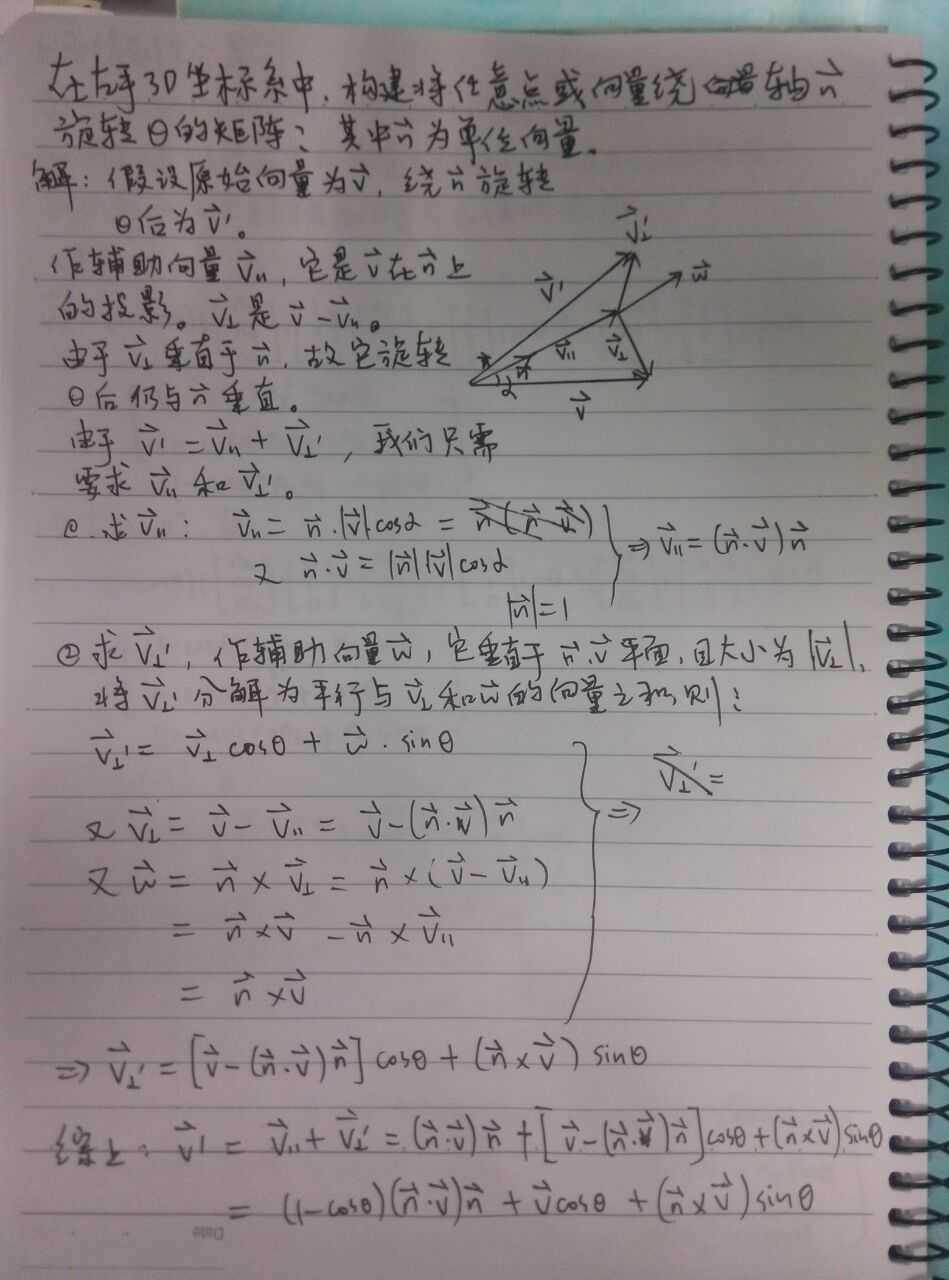 在右手3D坐标系中,构建将任意点或向量绕向量轴n⃗
旋转θ的矩阵;其中n⃗为单位向量。
解:假设原始向量为v⃗,绕n⃗旋转
θ后为v⃗'。
作辅助向量v⃗∥,它是v⃗在n⃗上
的投影。v⃗⊥是v⃗-v⃗∥。
由于v⃗⊥垂直于n⃗,故它旋转
θ后仍与n⃗垂直。
由于 v⃗'=v⃗∥+v⃗⊥',我们只需
要求v⃗∥和v⃗⊥'。
v⃗⊥'
w⃗
v⃗'
n⃗ v⃗∥ v⃗⊥
α
v⃗
求v⃗∥: v⃗∥=n⃗·|v⃗|cosα=n⃗(n⃗ v⃗) ⇒v⃗∥=(n⃗·v⃗)n⃗
又 n⃗·v⃗=|n⃗||v⃗|cosα
|n⃗|=1
② 求v⃗⊥',作辅助向量w⃗,它垂直于n⃗.v⃗平面,且大小为|v⃗⊥|,
将v⃗⊥'分解为平行与v⃗⊥和w⃗的向量之和,则:
v⃗⊥'= v⃗⊥cosθ+w⃗·sinθ ⇒ v⃗⊥'=
又v⃗⊥=v⃗-v⃗∥=v⃗-(n⃗·v⃗)n⃗
又w⃗=n⃗×v⃗⊥=n⃗×(v⃗-v⃗∥)
=n⃗×v⃗-n⃗×v⃗∥
=n⃗×v⃗
⇒v⃗⊥'=[v⃗-(n⃗·v⃗)n⃗]cosθ+(n⃗×v⃗)sinθ
综上:v⃗'=v⃗∥+v⃗⊥'=(n⃗·v⃗)n⃗+[v⃗-(n⃗·v⃗)n⃗]cosθ+(n⃗×v⃗)sinθ
=(1-cosθ)(n⃗·v⃗)n⃗+v⃗cosθ+(n⃗×v⃗)sinθ